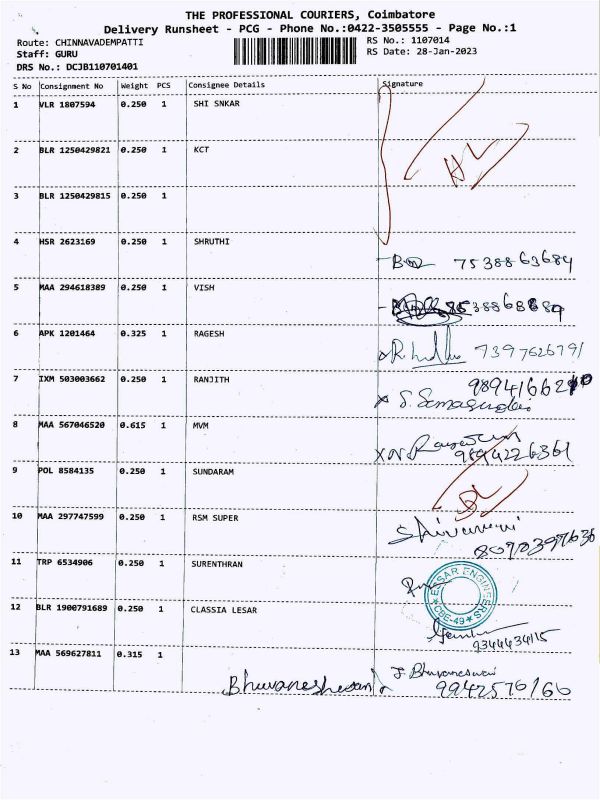 THE PROFESSIONAL COURIERS, Coimbatore
Delivery Runsheet - PCG - Phone No.:0422-3505555 - Page No.:1
Route: CHINNAVADEMPATTI RS No.: 1107014
Staff: GURU RS Date: 28-Jan-2023
DRS No.: DCJB110701401
S No Consignment No Weight PCS Consignee Details Signature
1 VLR 1807594 0.250 1 SHI SNKAR
2 BLR 1250429821 0.250 1 KCT
3 BLR 1250429815 0.250 1
4 HSR 2623169 0.250 1 SHRUTHI
7538863684
5 MAA 294618389 0.250 1 VISH
6 APK 1201464 0.325 1 RAGESH
7397626791
7 IXM 503003662 0.250 1 RANJITH
8 MAA 567046520 0.615 1 MVM
9894226361
9 POL 8584135 0.250 1 SUNDARAM
10 MAA 297747599 0.250 1 RSM SUPER
11 TRP 6534906 0.250 1 SURENTHRAN
ESSAR ENGINEERS
CBE-49
12 BLR 1900791689 0.250 1 CLASSIA LESAR
9344434115
13 MAA 569627811 0.315 1
J. Bhuvaneswari
9942576166